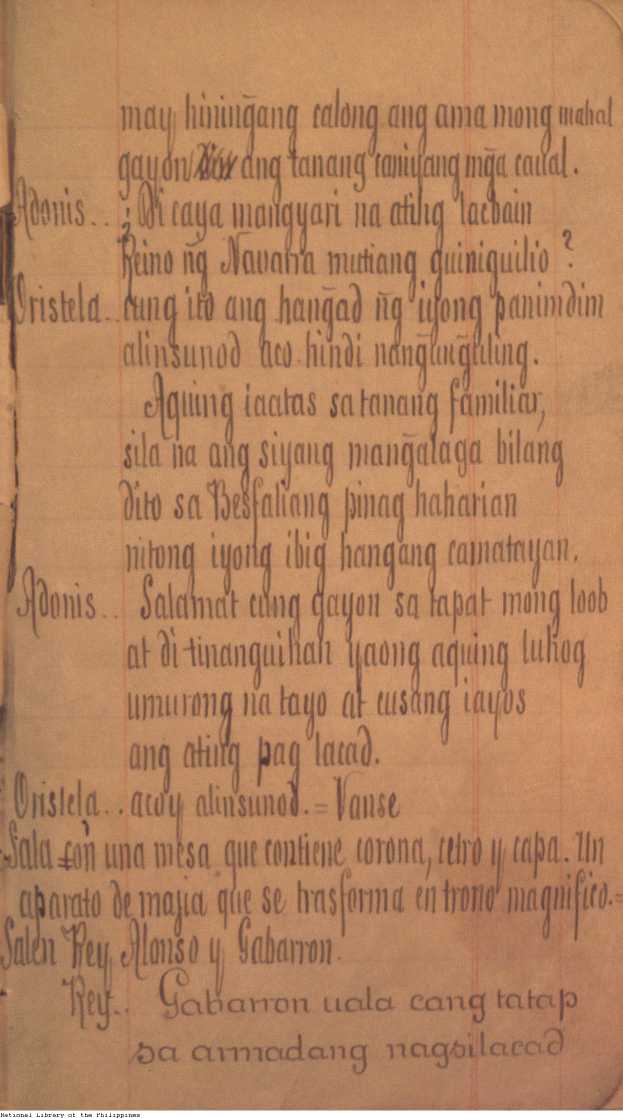 may hininḡang calong ang ama mong mahal
gayon ang tanang caniyang mḡa caual.
Adonis.. ¿Di caya mangyari na ating lacbain
Reino nḡ Navarra mutiang guiniguilio?
Oristela.. cung ito ang hanḡad nḡ iyong panimdim
alinsunod aco hindi nanḡunḡuling.
Aquing iaatas sa tanang familiar,
sila na ang siyang manḡalaga bilang
dito sa Besfaliang pinag haharian
nitong iyong ibig hangang camatayan.
Adonis.. Salamat cung gayon sa tapat mong loob
at di tinanguihan yaong aquing luhog
umurong na tayo at cusang iayos
ang ating pag lacad.
Oristela.. acoy alinsunod.= Vanse
Sala con una mesa que contiene corona, cetro y capa. Un
aparato de majia que se trasforma en trono magnifico.=
Salen Rey Alonso y Gabarron.
Rey.. Gabarron uala cang tatap
sa armadang nagsilacad
National Library of the Philippines